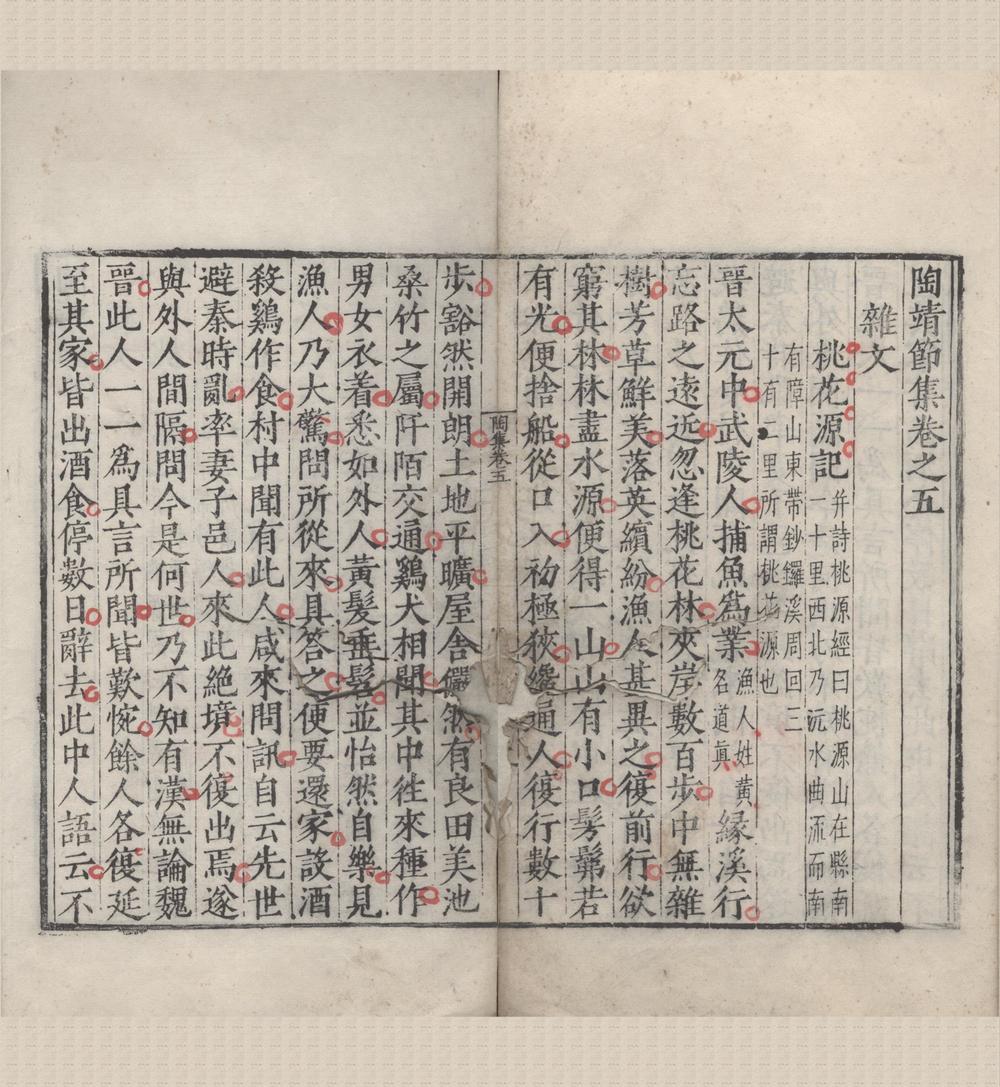 陶靖節集卷之五
雜文
桃花源記 并詩桃源經曰桃源山在縣南
一十里西北乃沅水曲流而南
有障山東帶鈔鑼溪周回三
十有二里所謂桃花源也
晉太元中武陵人捕魚爲業 漁人姓黃名道眞 緣溪行
忘路之遠近忽逢桃花林夾岸數百步中無雜
樹芳草鮮美落英繽紛漁人甚異之復前行欲
窮其林林盡水源便得一山山有小口髣髴若
有光便捨船從口入初極狹纔通人復行數十
陶集卷五
步豁然開朗土地平曠屋舍儼然有良田美池
桑竹之屬阡陌交通鷄犬相聞其中徃來種作
男女衣着悉如外人黃髮垂髫並怡然自樂見
漁人乃大驚問所從來具答之便要還家設酒
殺鷄作食村中聞有此人咸來問訊自云先世
避秦時亂率妻子邑人來此絕境不復出焉遂
與外人間隔問今是何世乃不知有漢無論魏
晉此人一一爲具言所聞皆歎惋餘人各復延
至其家皆出酒食停數日辭去此中人語云不